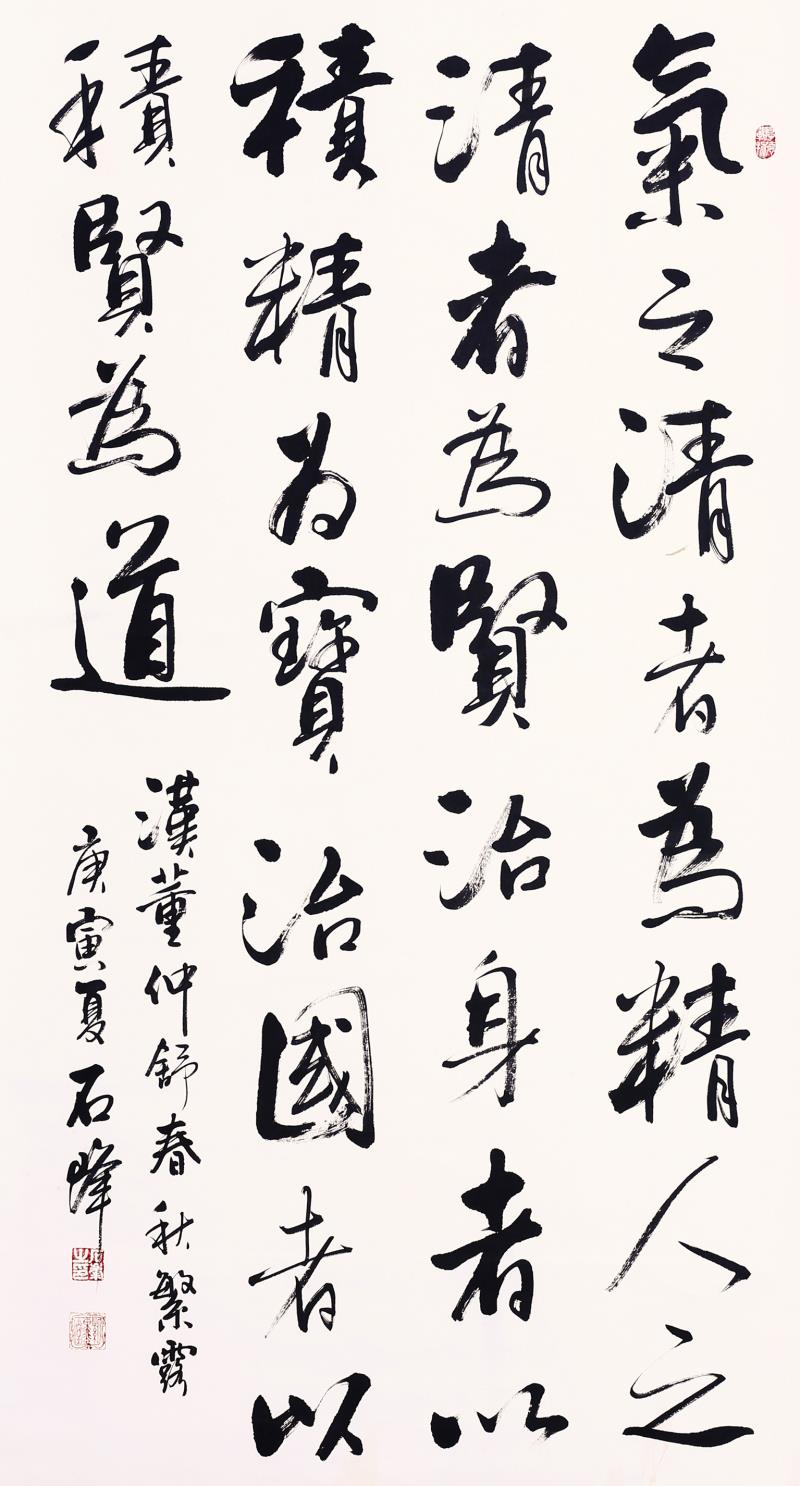 氣之清者為精人之
清者為賢治身者以
積精為寶治國者以
積賢為道
漢董仲舒春秋繁露
庚寅夏石峰